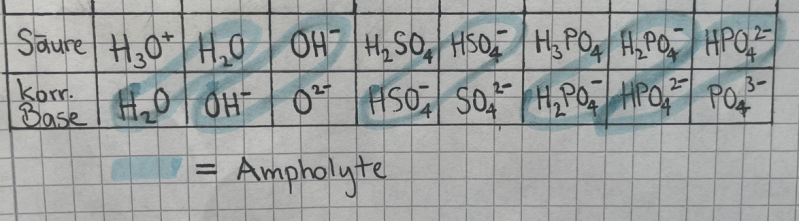 Säure H₃O⁺ H₂O OH⁻ H₂SO₄ HSO₄⁻ H₃PO₄ H₂PO₄⁻ HPO₄²⁻
Korr. Base H₂O OH⁻ O²⁻ HSO₄⁻ SO₄²⁻ H₂PO₄⁻ HPO₄²⁻ PO₄³⁻
= Ampholyte